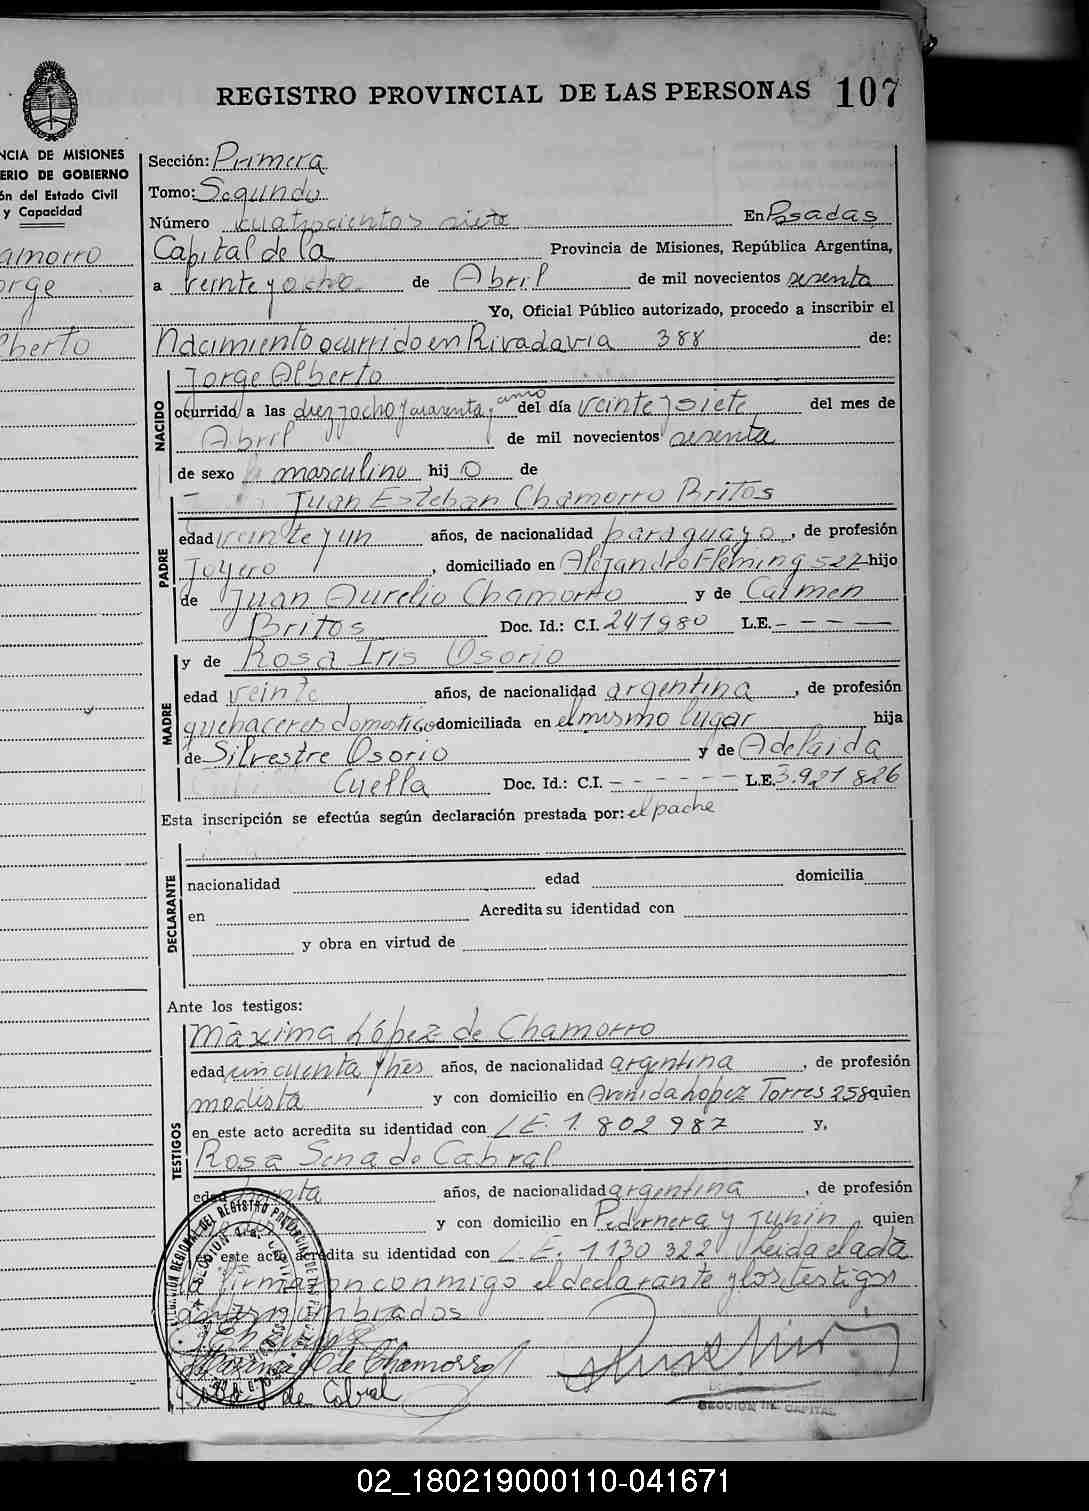 REGISTRO PROVINCIAL DE LAS PERSONAS 107
NCIA DE MISIONES
ERIO DE GOBIERNO
ón del Estado Civil
y Capacidad
amorro
orge
lberto
Sección: Primera
Tomo: Segundo
Número cuatrocientos siete En Posadas
Capital de la Provincia de Misiones, República Argentina,
a veinte y ocho de Abril de mil novecientos sesenta
Yo, Oficial Público autorizado, procedo a inscribir el
Nacimiento ocurrido en Rivadavia 388 de:
NACIDO
Jorge Alberto
ocurrido a las diez y ocho y cuarenta y cinco del día veinte y siete del mes de
Abril de mil novecientos sesenta
de sexo masculino hij o de
PADRE
Juan Esteban Chamorro Britos
edad veinte y un años, de nacionalidad paraguayo, de profesión
Joyero, domiciliado en Alejandro Fleming 527 hijo
de Juan Aurelio Chamorro y de Carmen
Britos Doc. Id.: C.I. 241980 L.E. - - - —
MADRE
y de Rosa Iris Osorio
edad veinte años, de nacionalidad argentina, de profesión
quehaceres domestico domiciliada en el mismo lugar hija
de Silvestre Osorio y de Adelaida
Cuella Doc. Id.: C.I. - - - - - - L.E. 3.921.826
Esta inscripción se efectúa según declaración prestada por: el padre
DECLARANTE
nacionalidad edad domicilia
en Acredita su identidad con
y obra en virtud de
Ante los testigos:
TESTIGOS
Máxima López de Chamorro
edad cincuenta y tres años, de nacionalidad argentina, de profesión
modista y con domicilio en Avenida Lopez Torres 258 quien
en este acto acredita su identidad con L.E. 1.802987 y,
Rosa Sena de Cabral
edad treinta años, de nacionalidad argentina, de profesión
y con domicilio en Pedernera y Junin, quien
en este acto acredita su identidad con L.E. 1130322 leida el acta
la firmaron conmigo el declarante y los testigos
antes nombrados
de Chamorro
de Cabral
SECCION CAPITAL
02_180219000110-041671